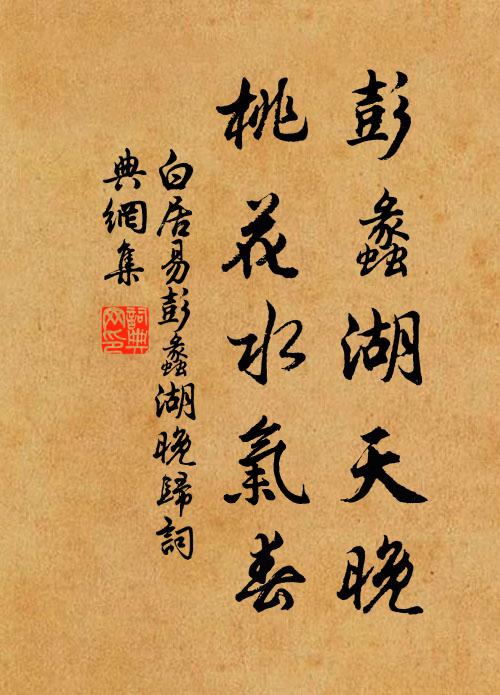 彭蠡湖天晚
桃花水氣春
白居易彭蠡湖晚歸詞
典網集
詞典網印